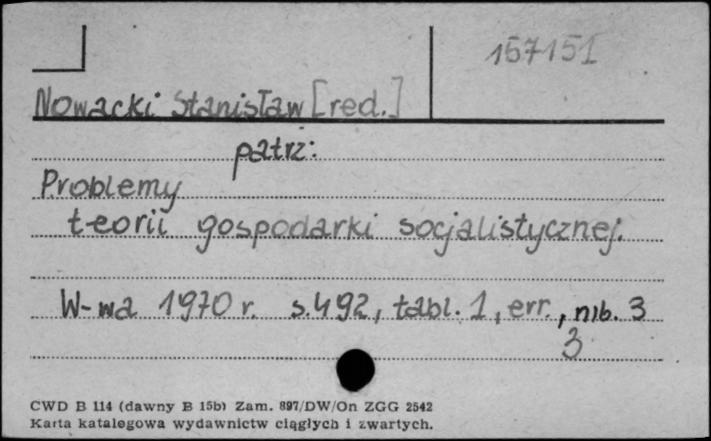 157151
Nowacki Stanisław [red.]
patrz:
Problemy
teorii gospodarki socjalistycznej.
W-wa 1970 r. s. 492, tabl. 1, err., nlb. 3
3
CWD B 114 (dawny B 15b) Zam. 897/DW/On ZGG 2542
Karta katalogowa wydawnictw ciągłych i zwartych.